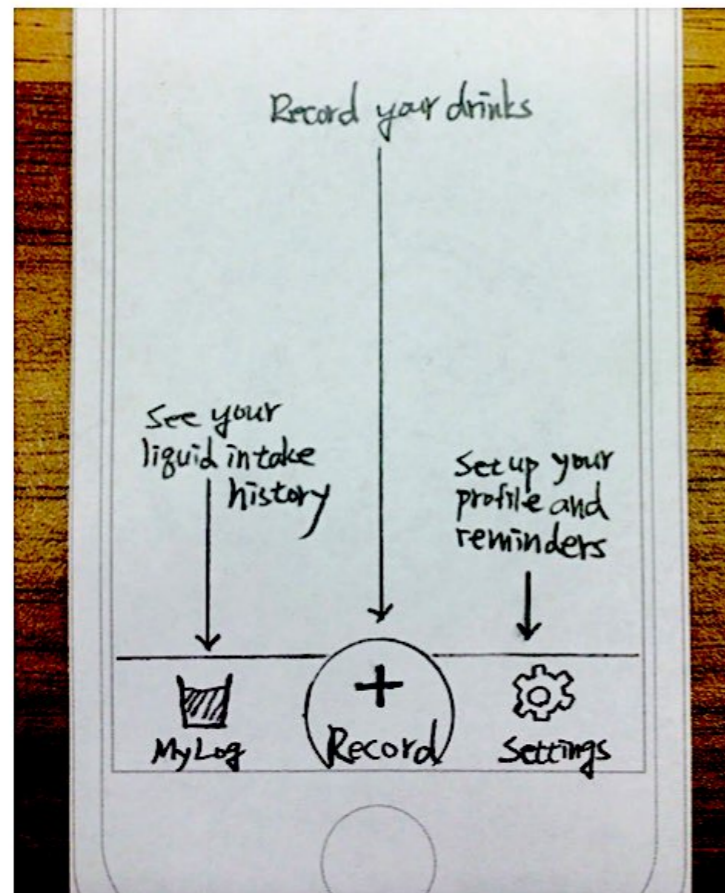 Record your drinks
See your
liquid intake
history
Set up your
profile and
reminders
+
My Log
Record
Settings